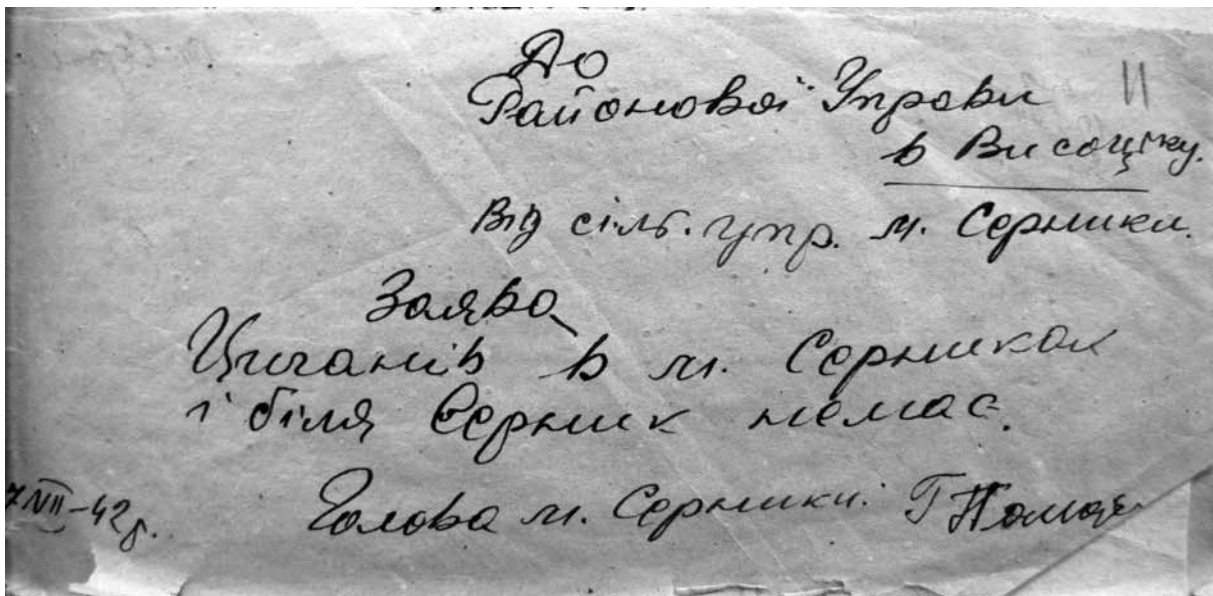 До
Районової Управи
11
в Висоцьку.
Від сільс. упр. м. Серники.
Заява
Циганів в м. Серниках
і біля Серник немає.
7 VII-42 р.
Голова м. Серники: Г